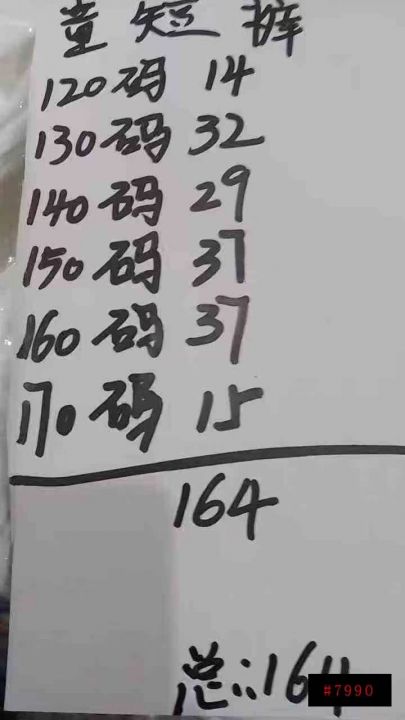 童短裤
120码 14
130码 32
140码 29
150码 37
160码 37
170码 15
164
总:164
#7990